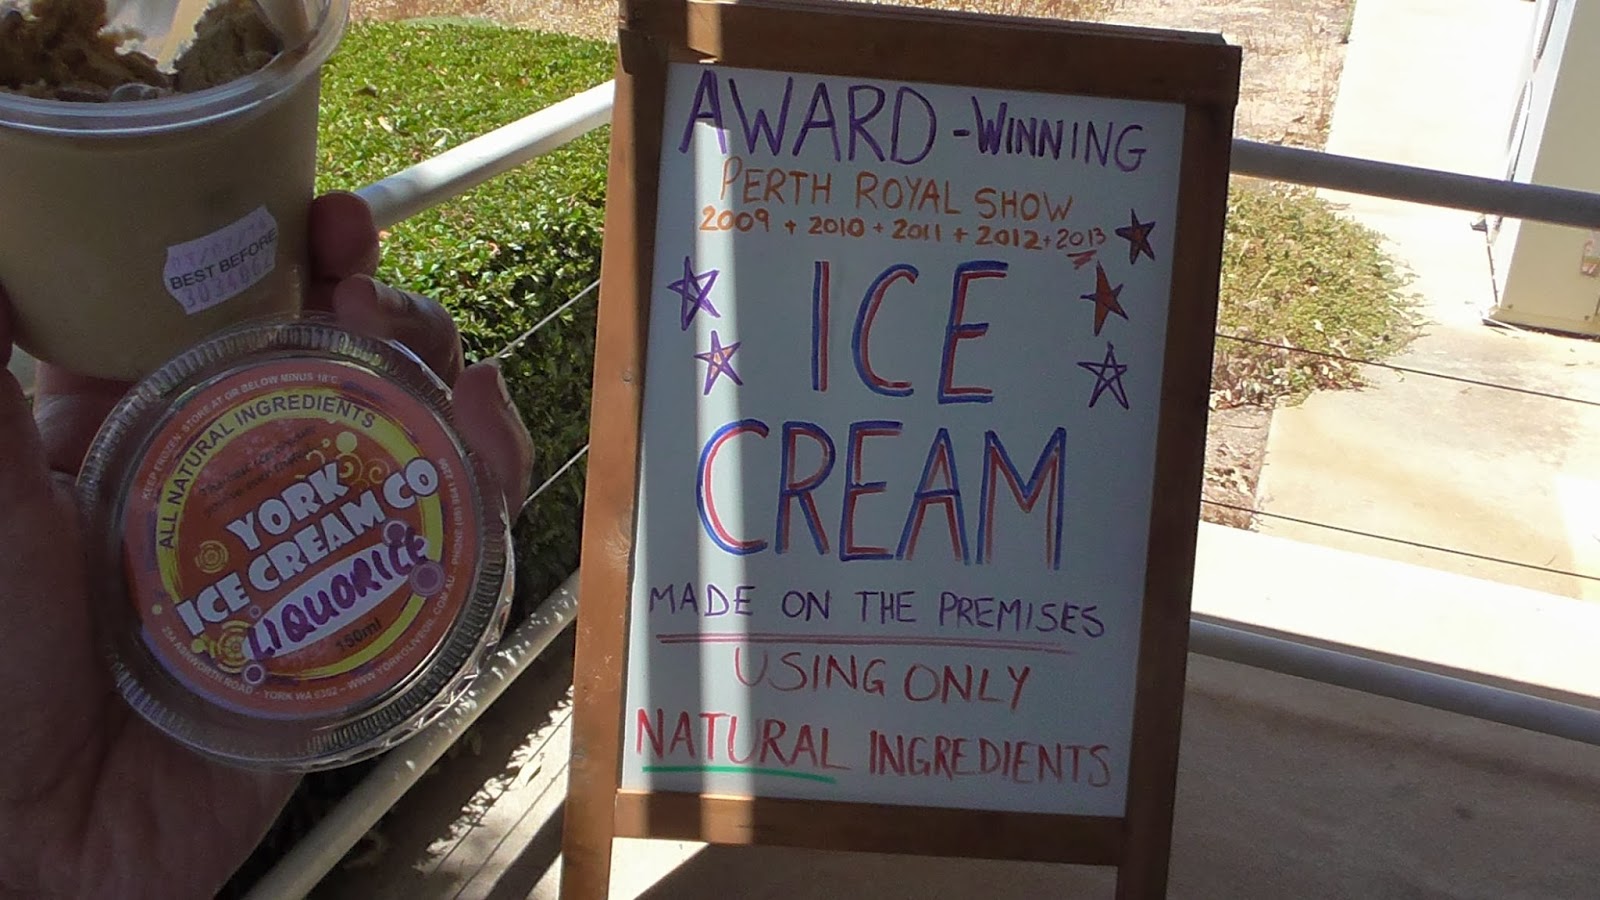 AWARD-WINNING
PERTH ROYAL SHOW
2009 + 2010 + 2011 + 2012 + 2013
ICE
CREAM
MADE ON THE PREMISES
USING ONLY
NATURAL INGREDIENTS
BEST BEFORE
KEEP FROZEN STORE AT OR BELOW MINUS 18°C
ALL NATURAL INGREDIENTS
YORK
ICE CREAM CO
LIQUORICE
150ml
ASHWORTH ROAD - YORK WA 6302 - WWW.YORKOLIVEOIL.COM.AU - PHONE